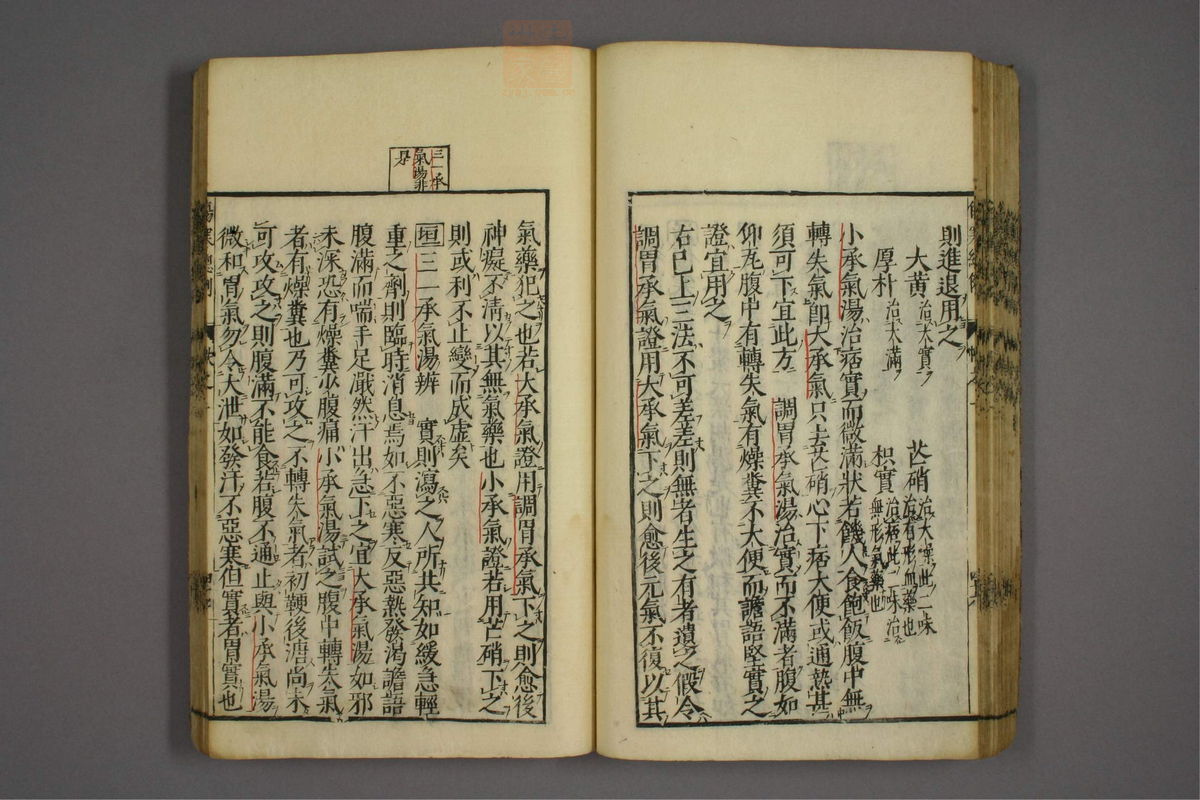 則進退用之
大黄 治大實 芒硝 治大燥此二味治有形血藥也
厚朴 治大滿 枳實 治痞此二味治無形氣藥也
小承氣湯治痞實而微滿狀若饑人食飽飯腹中無
轉失氣即大承氣只去芒硝心下痞大便或通熱甚
須可下宜此方 調胃承氣湯治實而不滿者腹如
仰瓦腹中有轉失氣有燥糞不大便而譫語堅實之
證宜用之
右已上三法不可差差則無者生之有者遺之假令
調胃承氣證用大承氣下之則愈後元氣不復以其
氣藥犯之也若大承氣證用調胃承氣下之則愈後
神癡不清以其無氣藥也小承氣證若用芒硝下之
則或利不止變而成虛矣
垣 三一承氣湯辨 實則瀉之人所共知如緩急輕
重之劑則臨時消息焉如不惡寒反惡熱發渴譫語
腹滿而喘手足濈然汗出急下之宜大承氣湯如邪
未深恐有燥糞少腹痛小承氣湯試之腹中轉失氣
者有燥糞也乃可攻之不轉失氣者初鞕後溏尚未
可攻攻之則腹滿不能食若腹不通止與小承氣湯
微和胃氣勿令大泄如發汗不惡寒但實者胃實也
三一承
氣湯非
是